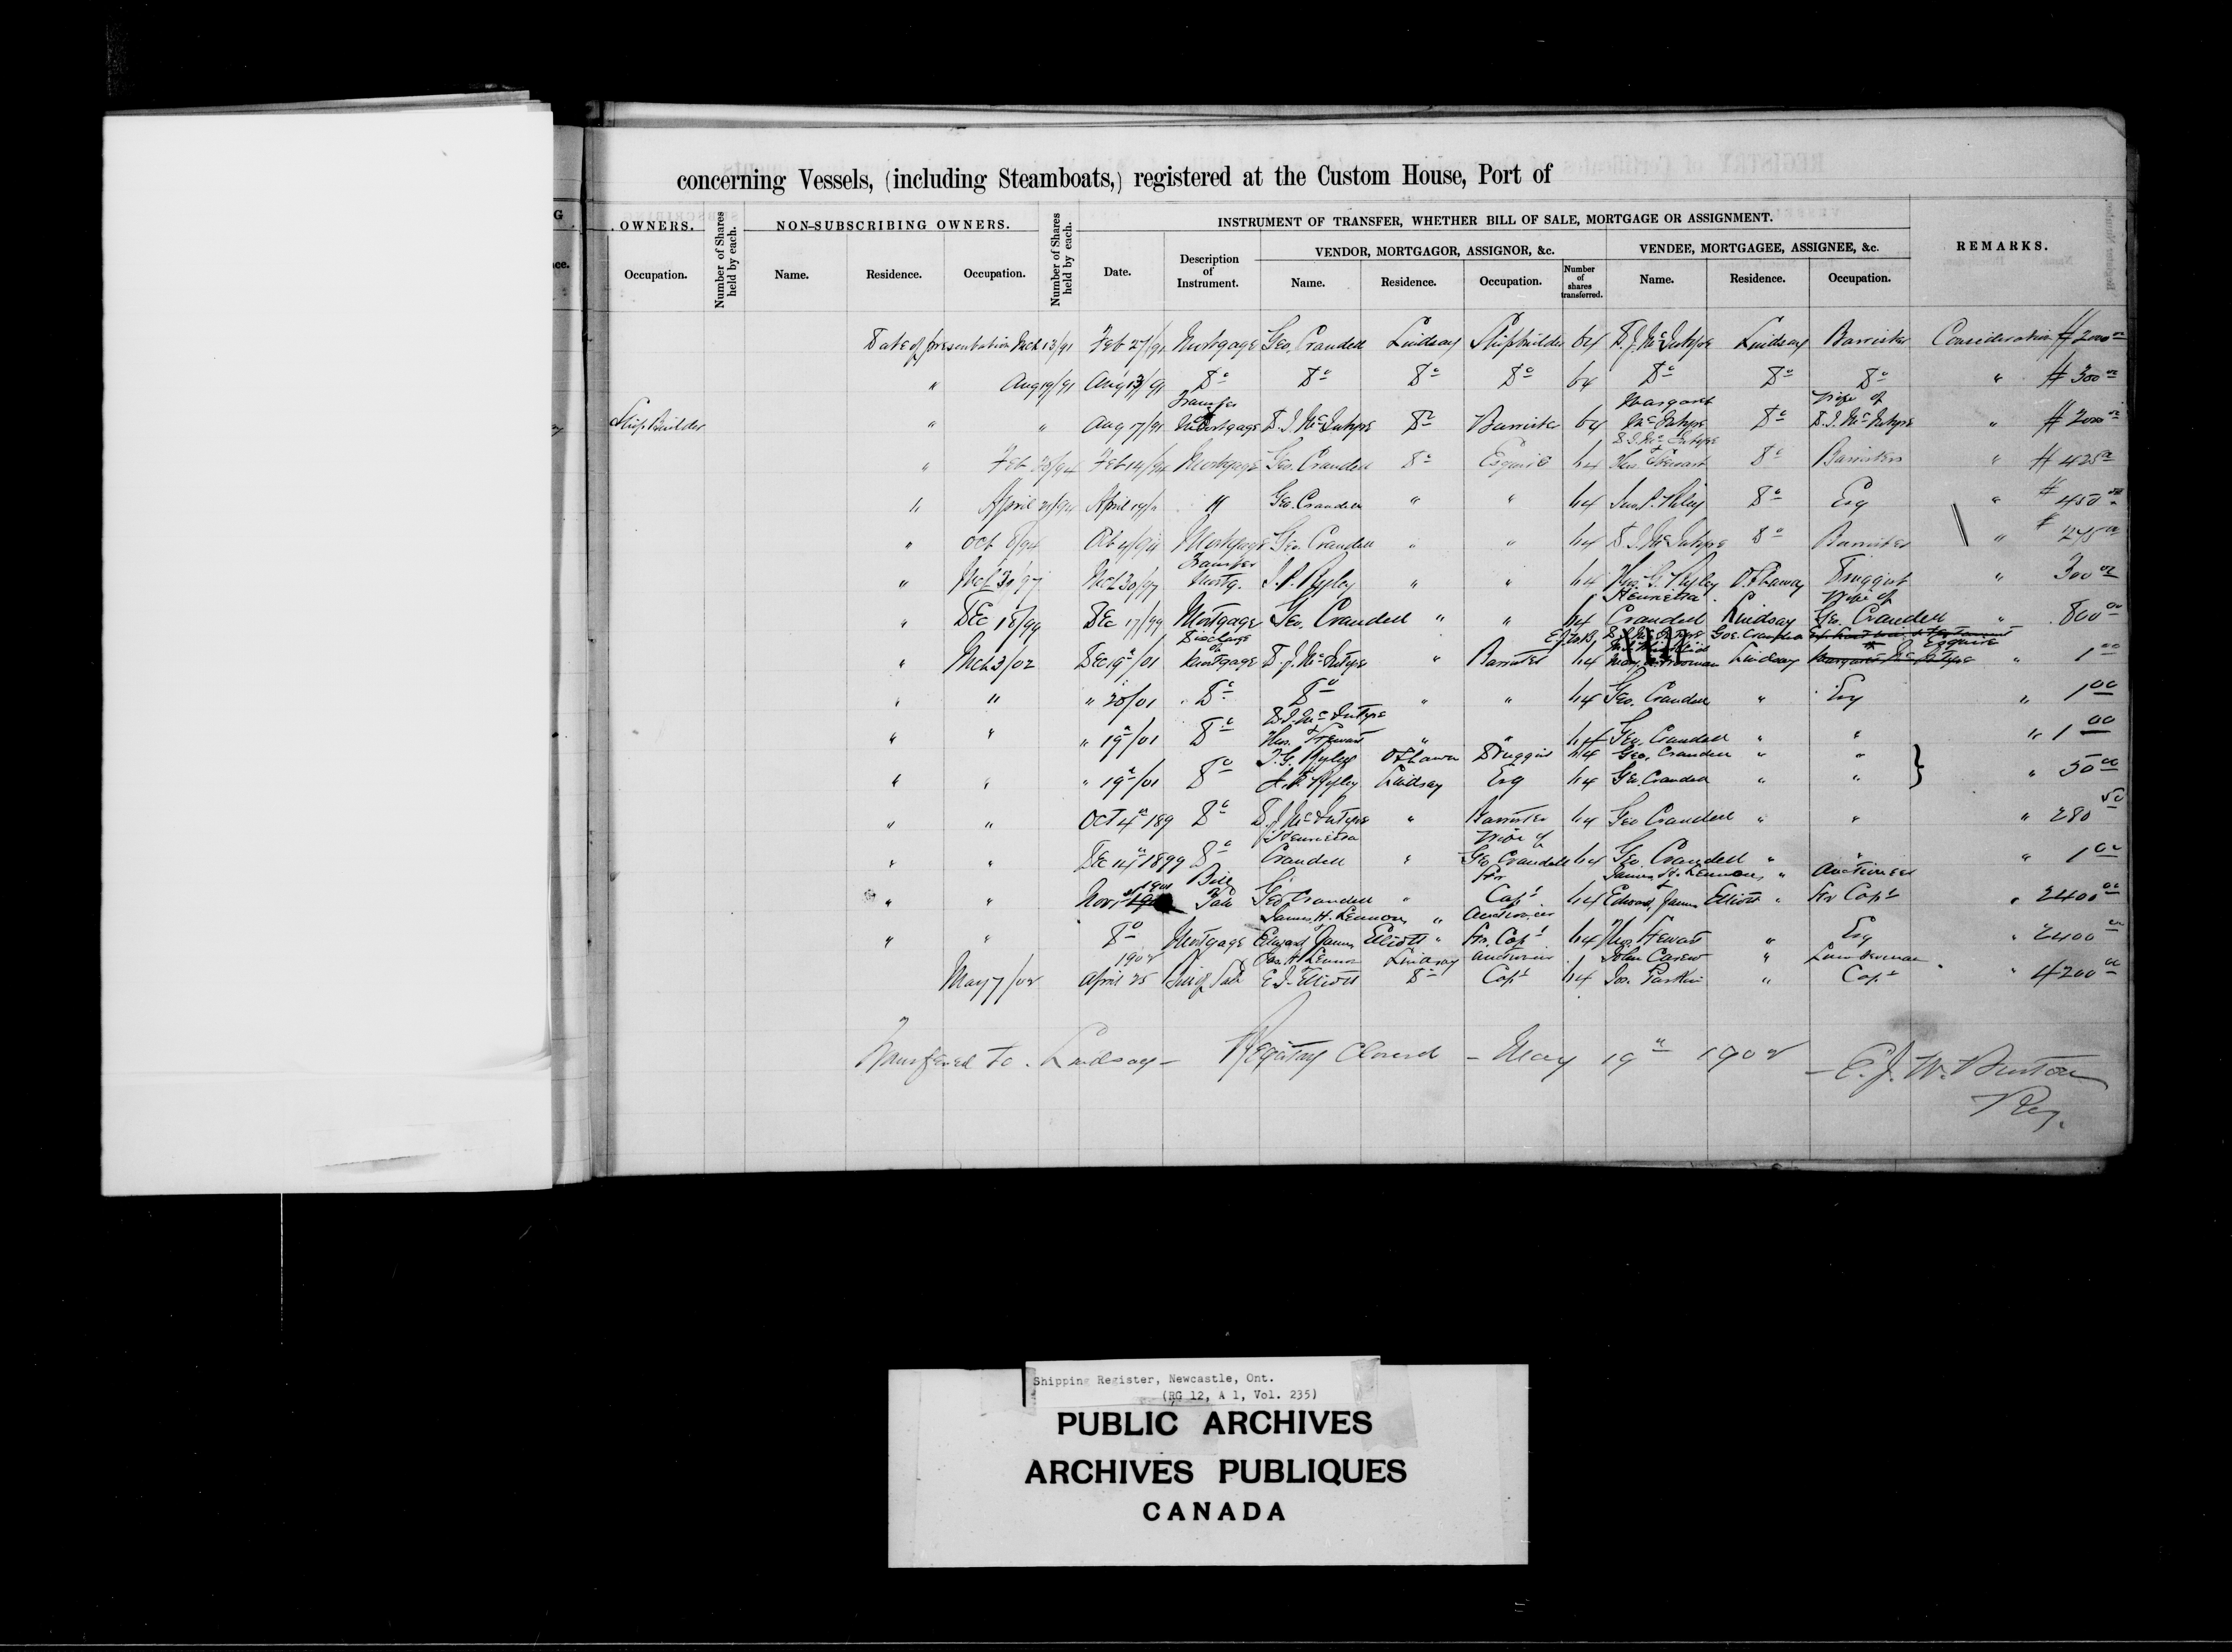 concerning Vessels, (including Steamboats,) registered at the Custom House, Port of
OWNERS. Number of Shares held by each. NON-SUBSCRIBING OWNERS. Number of Shares held by each. INSTRUMENT OF TRANSFER, WHETHER BILL OF SALE, MORTGAGE OR ASSIGNMENT. REMARKS.
VENDOR, MORTGAGOR, ASSIGNOR, &c. VENDEE, MORTGAGEE, ASSIGNEE, &c.
Occupation. Name. Residence. Occupation. Date. Description of Instrument. Name. Residence. Occupation. Number of shares transferred. Name. Residence. Occupation.
Date of presentation Mch 13/91 Feb 27/91 Mortgage Geo. Crandell Lindsay Shipbuilder 64 D. J. McIntyre Lindsay Barrister Consideration $2000 00
" Aug 19/91 Aug 13/91 Do Do Do Do 64 Do Do Do " $300 00
Transfer Margaret Wife of
Ship Builder " " Aug 17/91 Mortgage D. J. McIntyre Do Barrister 64 McIntyre Do D. J. McIntyre " $2000 00
D. J. McIntyre
" Feb 28/94 Feb 14/94 Mortgage Geo. Crandell Do Esquire 64 Thos. Stewart Do Barristers " $425 00
" April 21/94 April 19/ " Geo. Crandell " " 64 Do Esq " $450 00
" Oct 8/94 Oct 4/94 Mortgage Geo. Crandell " " 64 D. J. McIntyre Do Barrister " $275 00
Transfer
" Mch 30/97 Mch 30/97 Mortg. J. P. Ryley " " 64 Thos. G. Ryley Ottaway Druggist " 300 00
Henrietta Wife of
" Dec 18/99 Dec 17/99 Mortgage Geo. Crandell " " 64 Crandell Lindsay Geo. Crandell " 800 00
Discharge of Geo. Crandell Esquire
" Mch 3/02 Dec 19th/01 Mortgage D. J. McIntyre " Barrister 64 Lindsay Margaret McIntyre " 1 00
" " " 20/01 Do Do " " 64 Geo. Crandell " Esq " 1 00
D. J. McIntyre
" " " 19th/01 Do Thos. Stewart " " 64 Geo. Crandell " " " 1 00
T. G. Ryley Ottawa Druggist 64 Geo. Crandell " "
" " " 19th/01 Do J. P. Ryley Lindsay Esq 64 Geo. Crandell " " } " 50 00
" " Oct 4th 189 Do D. J. McIntyre " Barrister 64 Geo Crandell " " " 280 50
Henrietta Wife of
" " Dec 14th 1899 Do Crandell " Geo Crandell 64 Geo. Crandell " " " 1 00
1901 Bill of Str James H. Lennon, " Auctioneer
" " Nov 1st Sale Geo Crandell " Capt 64 Edward James Elliott " Str Capt " 2400 00
James H. Lennon, " Auctioneer
" " Do Mortgage Edward James Elliott " Str. Capt 64 Thos. Stewart " Esq " 2400 00
1902 Jas. H. Lennon Lindsay Auctioneer John Carew " Lumberman
May 7/02 April 25 Bill of Sale E. J. Elliott Do Capt 64 Jos. Parkin " Capt " 4200 00
Transferred to Lindsay – Registry Closed – May 19th 1902 – C. J. W. Burton
Reg.
Shipping Register, Newcastle, Ont.
(RG 12, A 1, Vol. 235)
PUBLIC ARCHIVES
ARCHIVES PUBLIQUES
CANADA